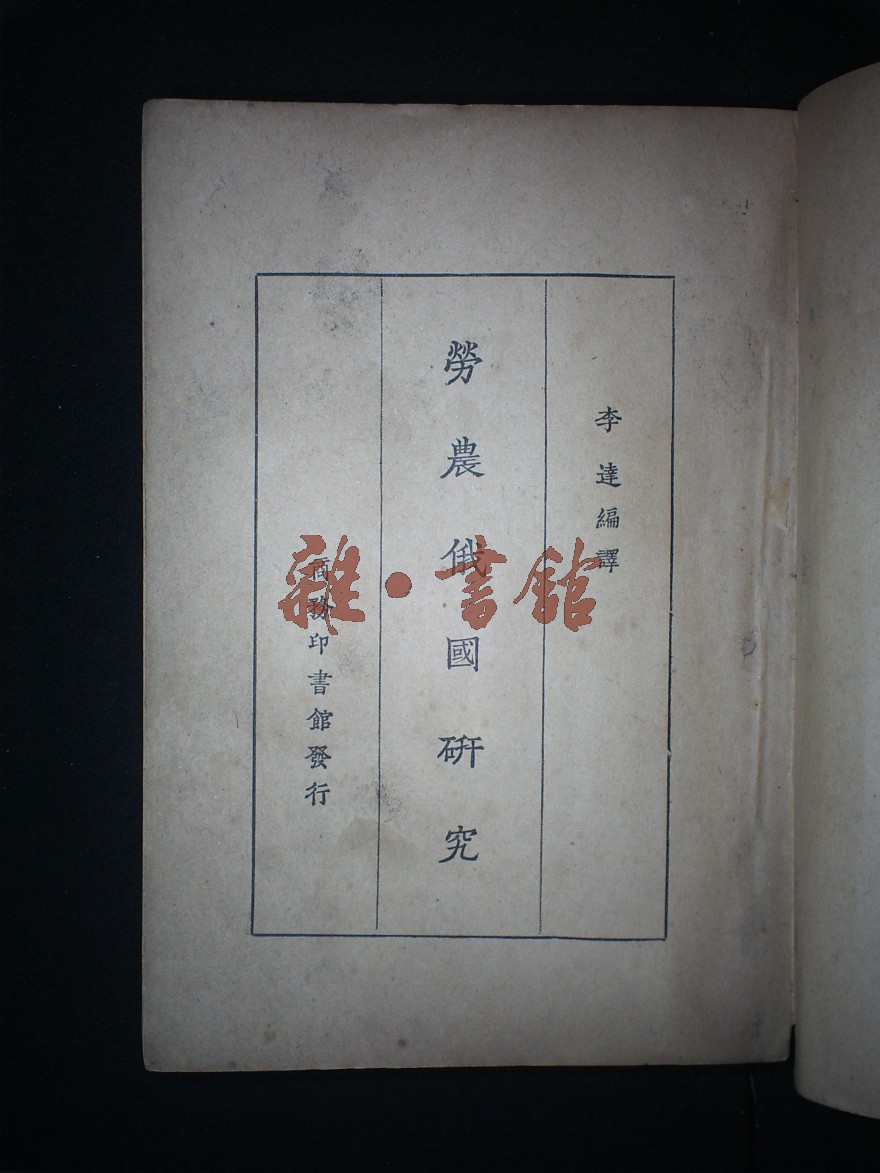 李達編譯
勞農俄國研究
商務印書館發行
雜·書館